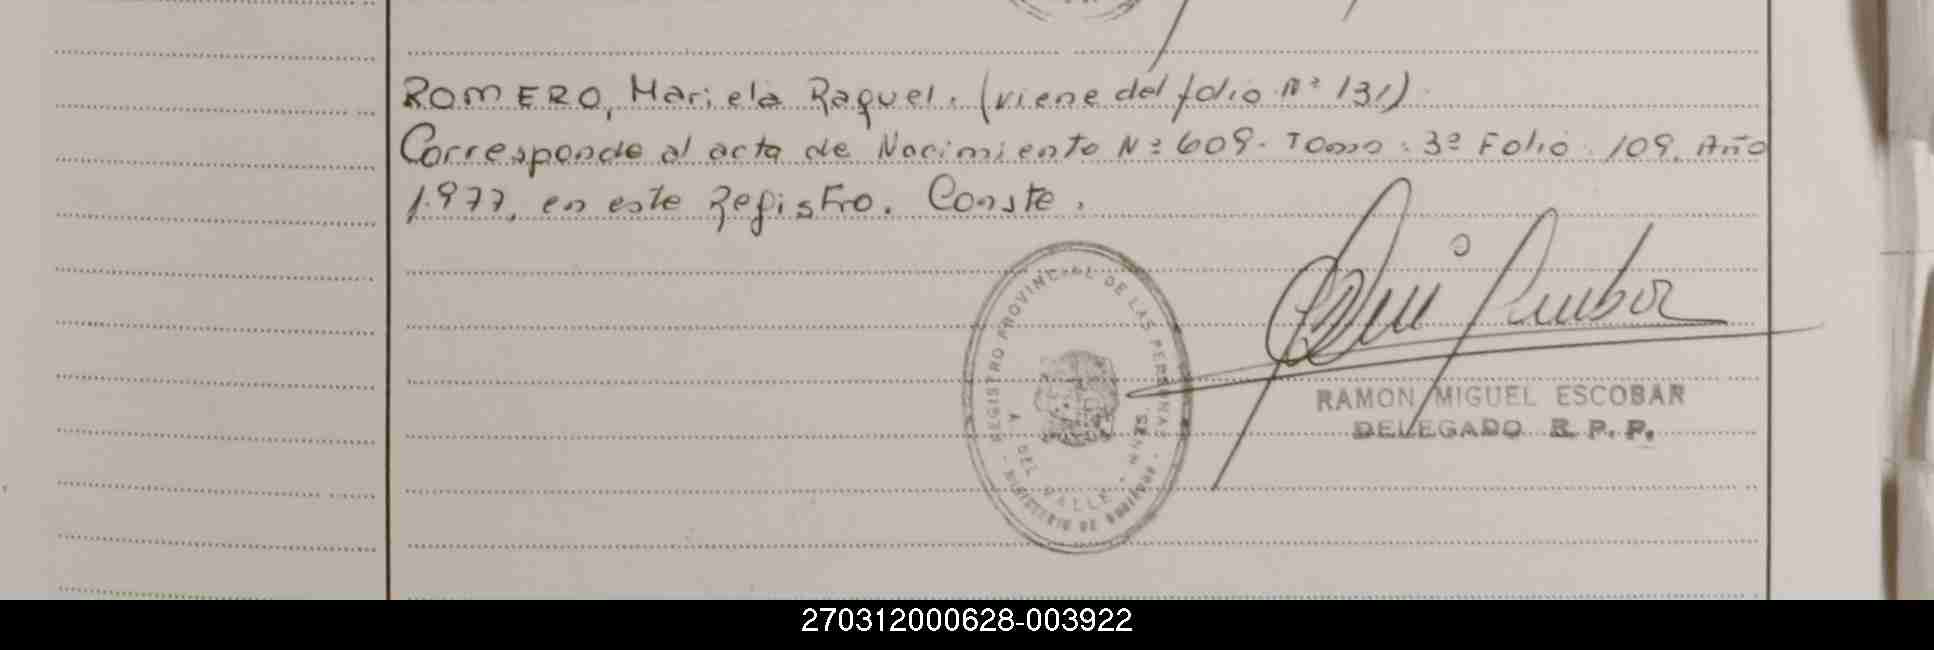 ROMERO, Mariela Raquel. (viene del folio Nº 131)
Corresponde al acta de Nacimiento Nº 609. Tomo. 3º Folio. 109. Año
1.977, en este Registro. Conste.
REGISTRO PROVINCIAL DE LAS PERSONAS
DEL VALLE
MINISTERIO DE GOBIERNO
RAMON MIGUEL ESCOBAR
DELEGADO R. P. P.
270312000628-003922